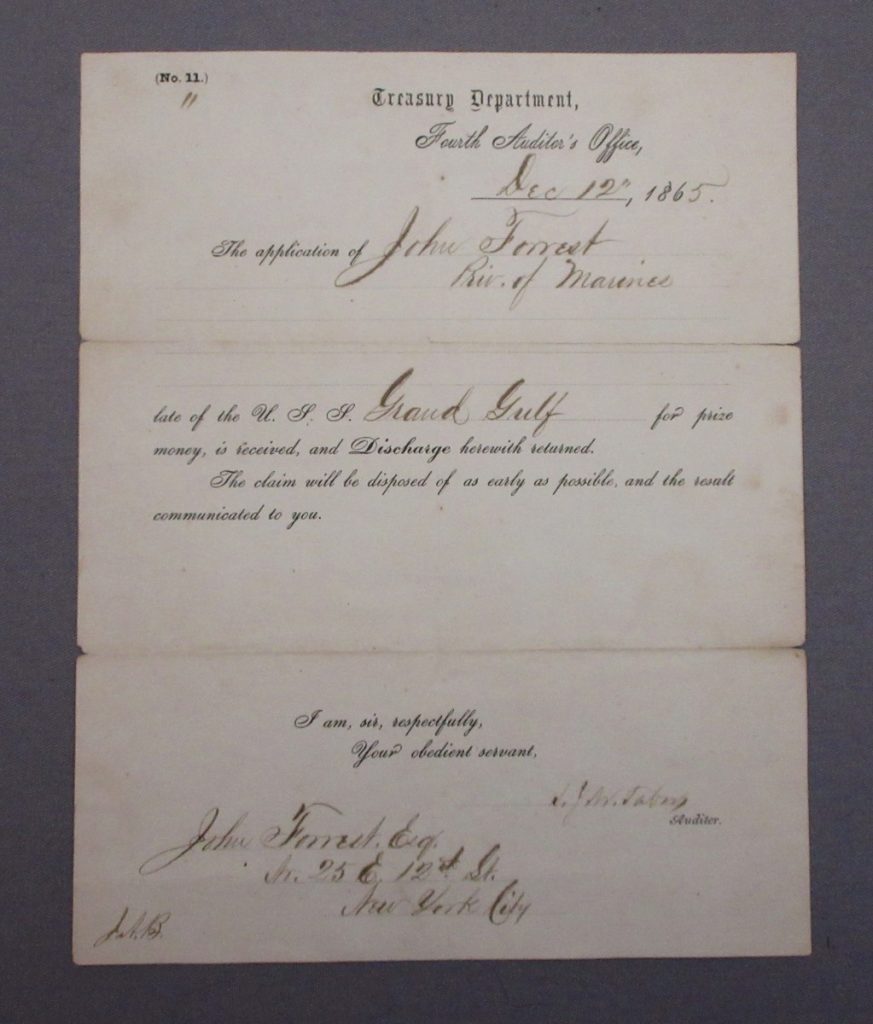 (No. 11.)
"
Treasury Department,
Fourth Auditor's Office,
Dec 12", 1865.
The application of John Forrest
Priv. of Marines
late of the U. S. S. Grand Gulf for prize
money, is received, and Discharge herewith returned.
The claim will be disposed of as early as possible, and the result
communicated to you.
I am, sir, respectfully,
Your obedient servant,
Auditor.
John Forrest, Esq.
25 E. 12th St.
New York City